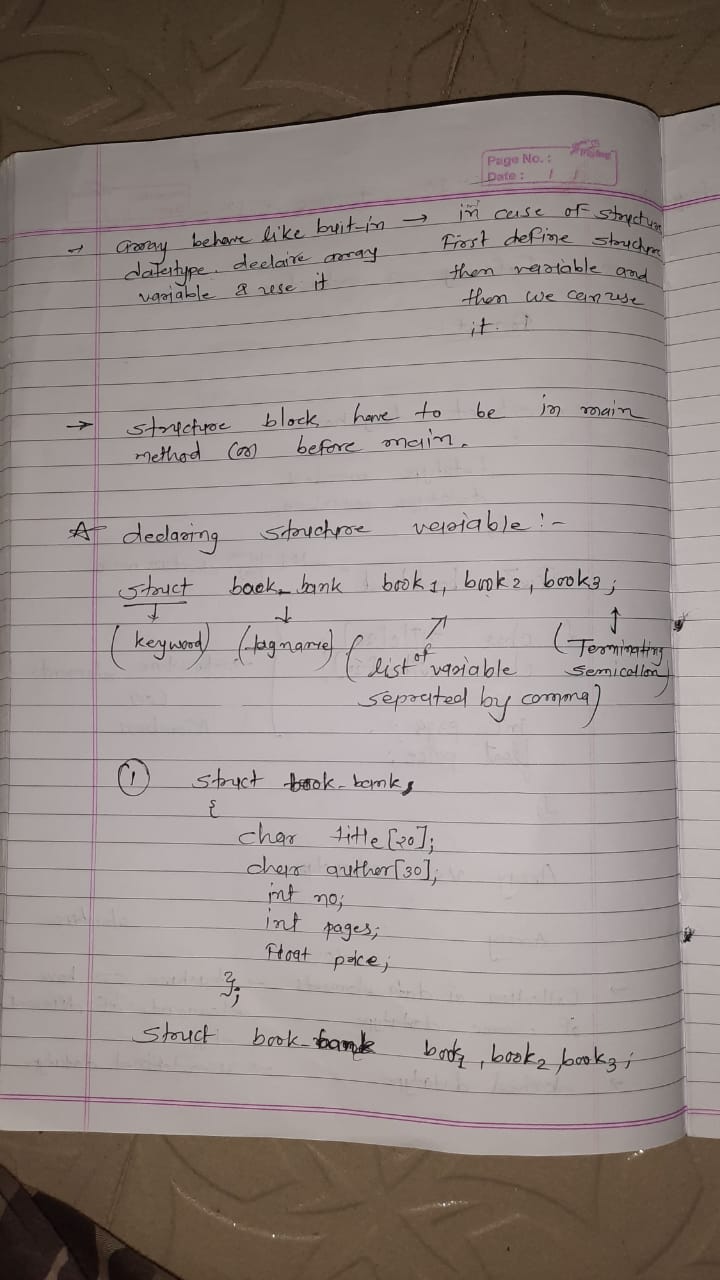 Page No. :
Date : / /
→ array behave like byit-in → in case of structure
datatype. declaire array First define structure
variable & use it then variable and
then we can use
it.
→ structure block have to be in main
method (or) before main.
declaring structure variable :-
struct book_bank book1, book2, book3;
(keyword) (tagname) (list of variable (Terminating
seprated by comma) semicollon)
① struct book_bank
{
char title[20];
char author[30];
int no;
int pages;
Float price;
};
struct book_bank book1, book2, book3;